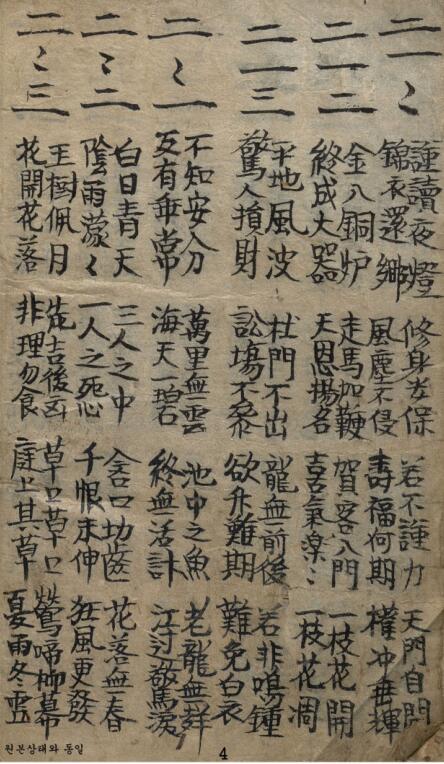 二一
謹讀夜燈 修身 保 若不謹力 天門自開
錦衣還鄉 風塵不侵 壽福何期 權冲垂輝
二一二
金入銅炉 走馬加鞭 賀客入門 一枝花開
終成大器 天恩揚名 喜氣 〻 一枝花凋
二一三
平地風波 杜門不出 龍無前後 若非鳴鐘
驚人損財 訟場不參 欲升難期 難免白衣
二〻一
不知安分 萬里無雲 池中之魚 老龍無
反有 常 海天一碧 終無活計 江 驚淚
二〻二
白日青天 三人之中 含口切齒 花落無春
陰雨濛〻 一人之死 千恨未伸 狂風更發
二〻三
玉樹佩月 先吉後凶 草口草口 鶯啼柳幕
花開花落 非理勿食 庭上其草 夏雨冬雪
원본상태와 동일
4